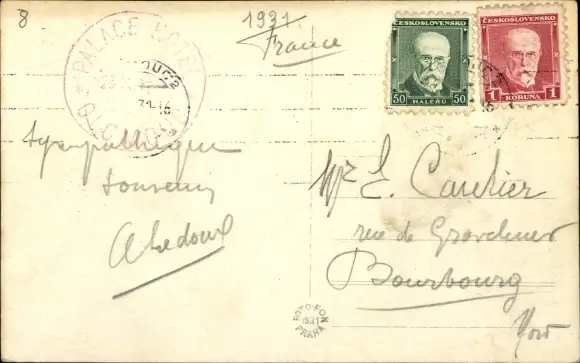 8
1931
France
PALACE HOTEL
OLOMOUC
OLOMOUC 2
ČESKOSLOVENSKO
50 HALÉŘŮ 50
ČESKOSLOVENSKO
1 KORUNA 1
Sympathique
souvenir
A Ledoux
Mr E. Caulier
rue de Gravelines
Bourbourg
Nord
FOTO-FON
1931
PRAHA